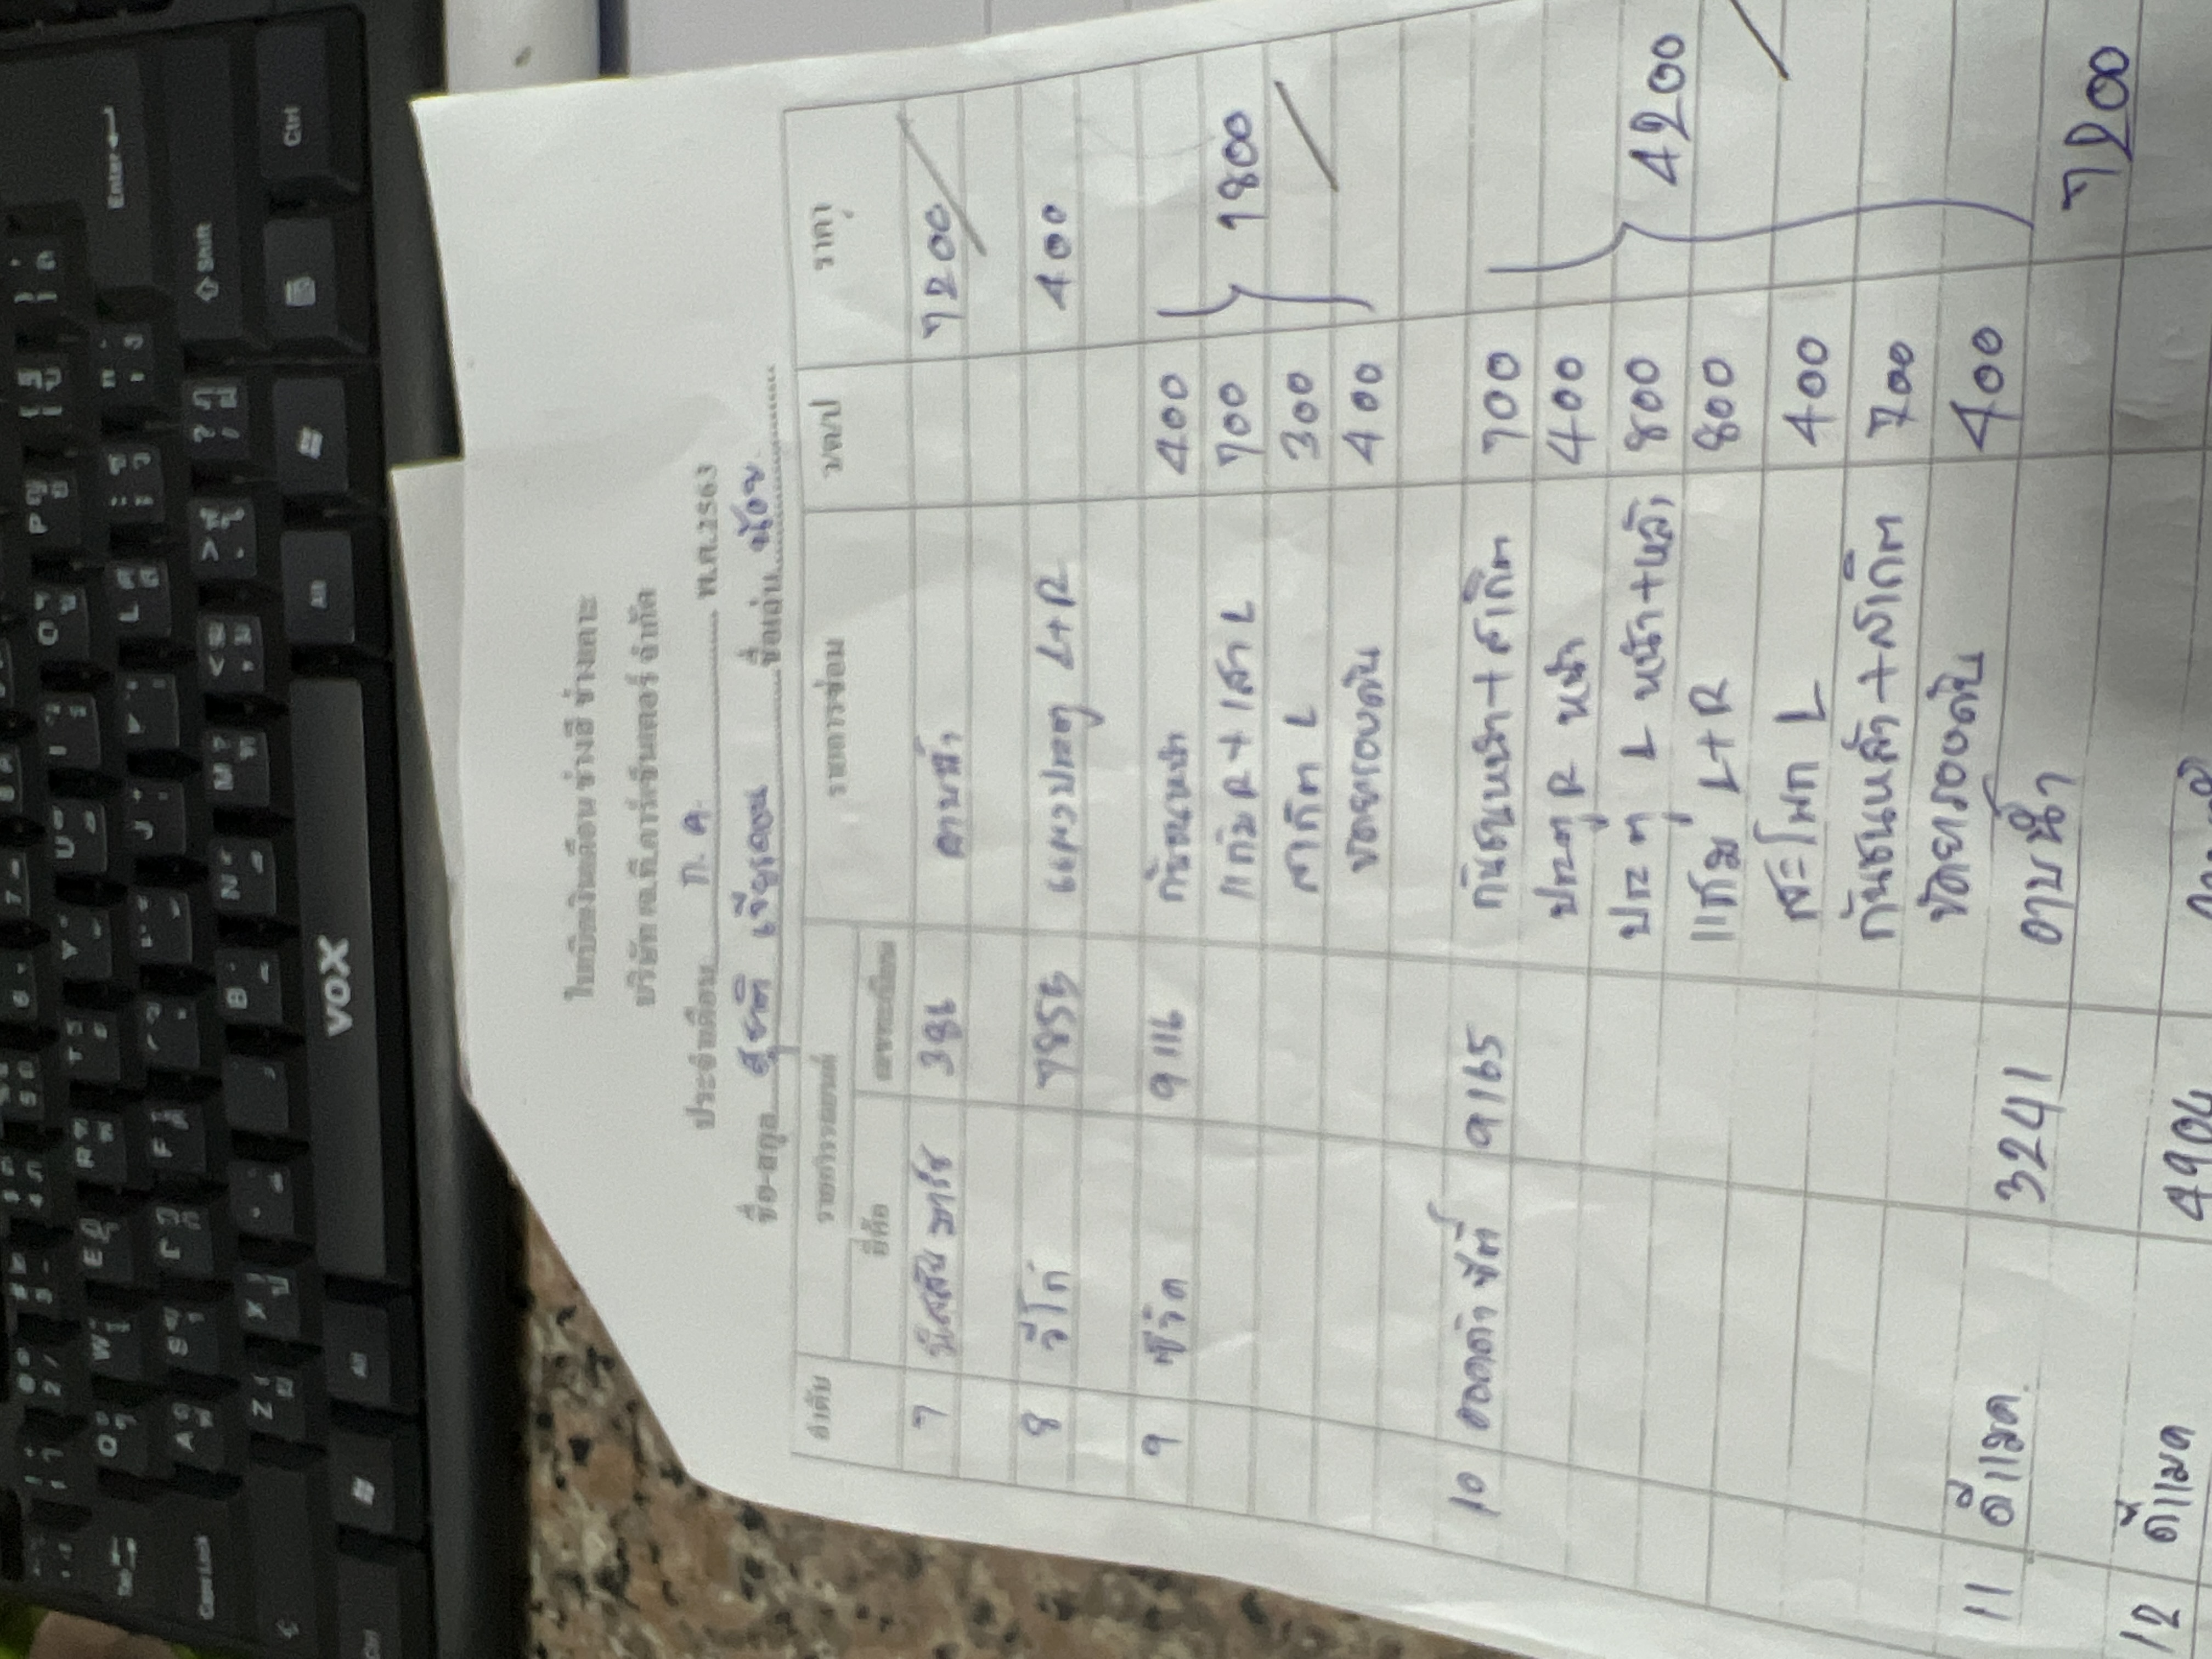 ใบเบิดเงินเดือน ช่างสี ช่างเคาะ
บริษัท เค.ที.คาร์เซ็นเตอร์ จำกัด
ประจำเดือน ก.ค. พ.ศ.2563
ชื่อ-สกุล ชื่อเล่น น้อย
ลำดับ รายการรถยนต์ รายการซ่อม ว/ด/ป ราคา
ยี่ห้อ เลขทะเบียน
7 นิสสัน มาร์ช 381 อาบน้ำ 7200
8 วีโก้ 7855 แผงประตู L+R 400
9 ซีวิค 9116 กันชนหน้า 400
แก้ม R + เสา L 700 1800
สเกิต L 300
ขัดยกรองดับ 400
10 ฮอนด้า ซิตี้ 9165 กันชนหน้า + สเกิต 700
ประตู R หน้า 400
ประตู L หน้า+หลัง 800 4200
แก้ม L+R 800
สะโพก L 400
กันชนหลัง + สเกิต 700
ขัดยกรองดับ 400
11 ดีแมค 3241 อาบน้ำ 7200
12 ดีแมค 4904
Enter
Shift
Ctrl
Alt
VOX
Alt
Caps Lock